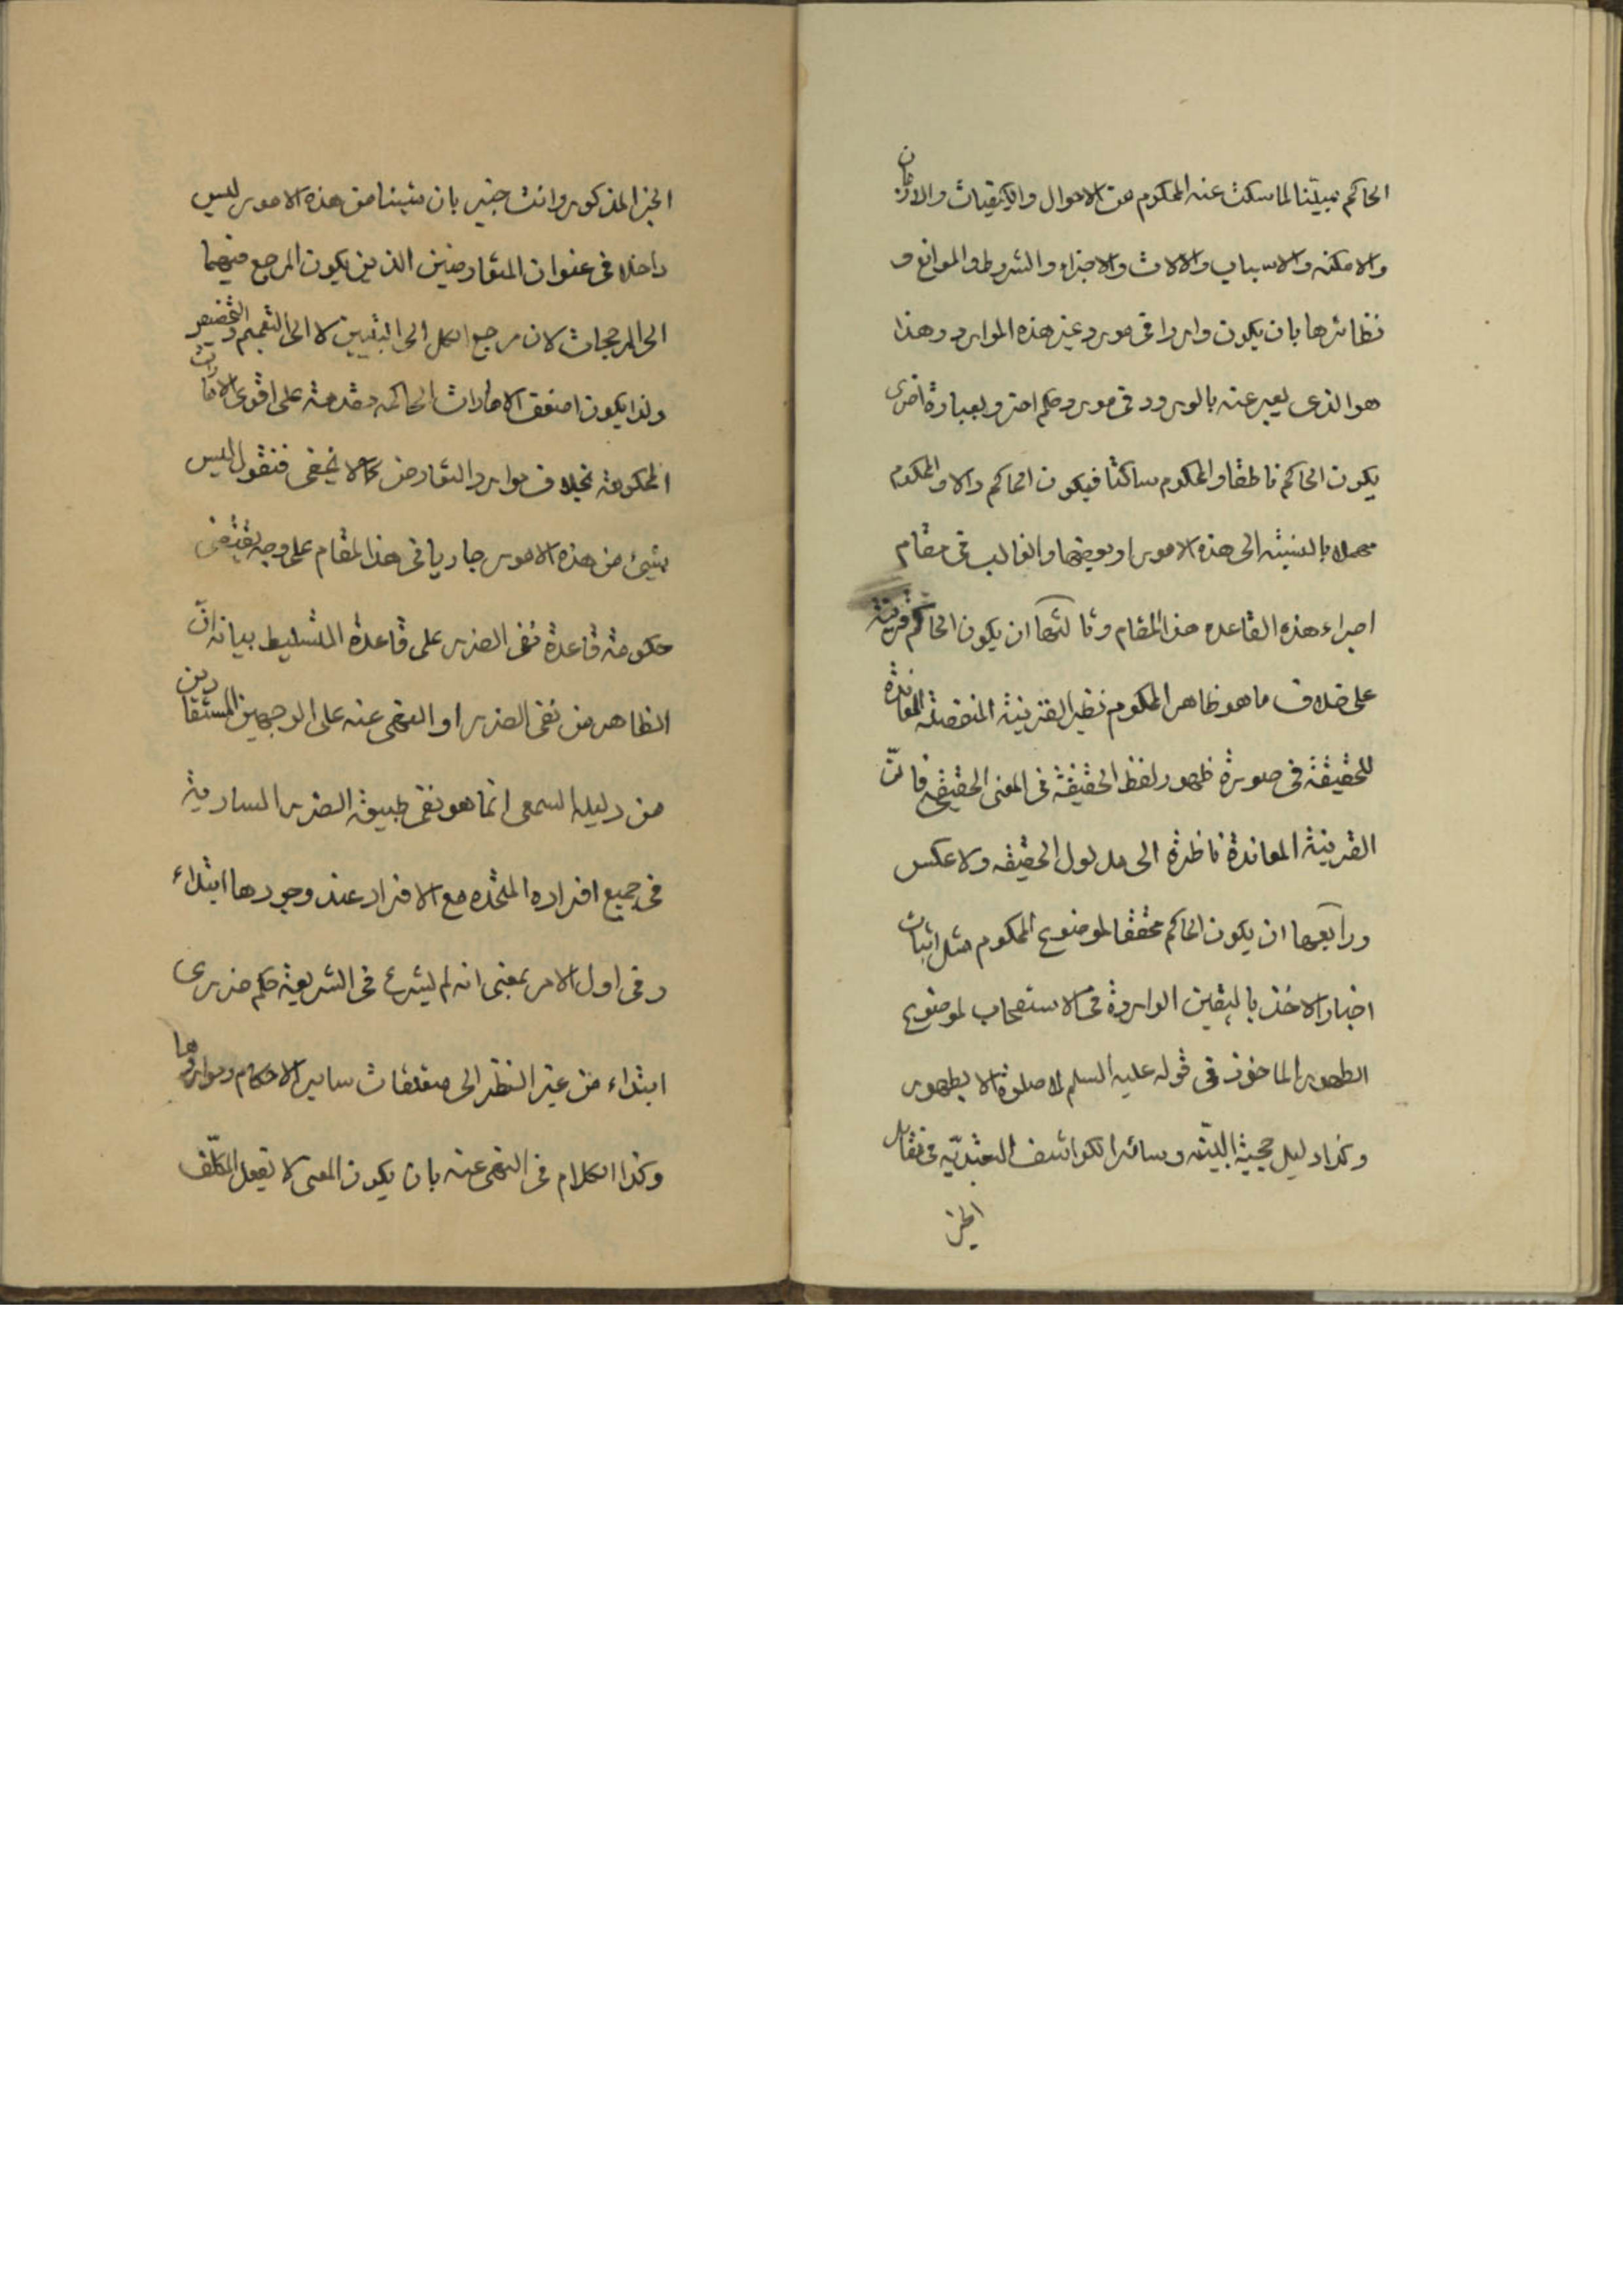 الحاكم مبيّنا لما سكت عنه المحكوم من الاحوال والكيفيات والازمان
والامكنه والاسباب والالات والاجزاء والشروط والموانع و
نظائرها بان يكون واردا فى مورد غير هذه الموارد وهذا
هو الذى يعبر عنه بالورود فى مورد حكم اخر وبعبارة اخرى
يكون الحاكم ناطقا والمحكوم ساكتا فيكون الحاكم دالا والمحكوم
مهملا بالنسبة الى هذه الامور او بعضها والغالب فى مقام
اجراء هذه القاعده هذا المقام وثالثها ان يكون الحاكم قرينة
على خلاف ما هو ظاهر المحكوم نظير القرينة المنفصلة المعاندة
للحقيقة فى صورة ظهور لفظ الحقيقة فى المعنى الحقيقى فانّ
القرينة المعاندة ناظرة الى مدلول الحقيقه ولا عكس
ورابعها ان يكون الحاكم محققا لموضوع المحكوم مثل اثبات
اخبار الاخذ باليقين الواردة فى الاستصحاب لموضوع
الطهور الماخوذ فى قوله عليه السلم لا صلوة الا بطهور
وكذا دليل حجية البيّنه وسائر الكواشف التعبّديّه فى مقابل
الخبر
الخبر المذكور وانت خبير بان شيئا من هذه الامور ليس
داخلا فى عنوان المتعارضين الذين يكون المرجع فيهما
الى المرجحات لان مرجع الكل الى التبيين لا الى التعميم والتخصيص
ولذا يكون اضعف الامارات الحاكمه مقدمة على اقوى الامارات
المحكومة بخلاف موارد التعارض كما لا يخفى فنقول ليس
شيئ من هذه الامور جاريا فى هذا المقام على وجه يقتضى
حكومة قاعدة نفى الضرر على قاعدة التسليط بيانه انّ
الظاهر من نفى الضرر او النهى عنه على الوجهين المستفادين
من دليله السمعى انما هو نفى طبيعة الضرر السارية
فى جميع افراده المتحده مع الافراد عند وجودها ابتداء
وفى اول الامر بمعنى انه لم يشرع فى الشريعة حكم ضررى
ابتداء من غير النظر الى متعلقات ساير الاحكام ومواردها
وكذا الكلام فى النهى عنه بان يكون المعنى لا يفعل المكلّف